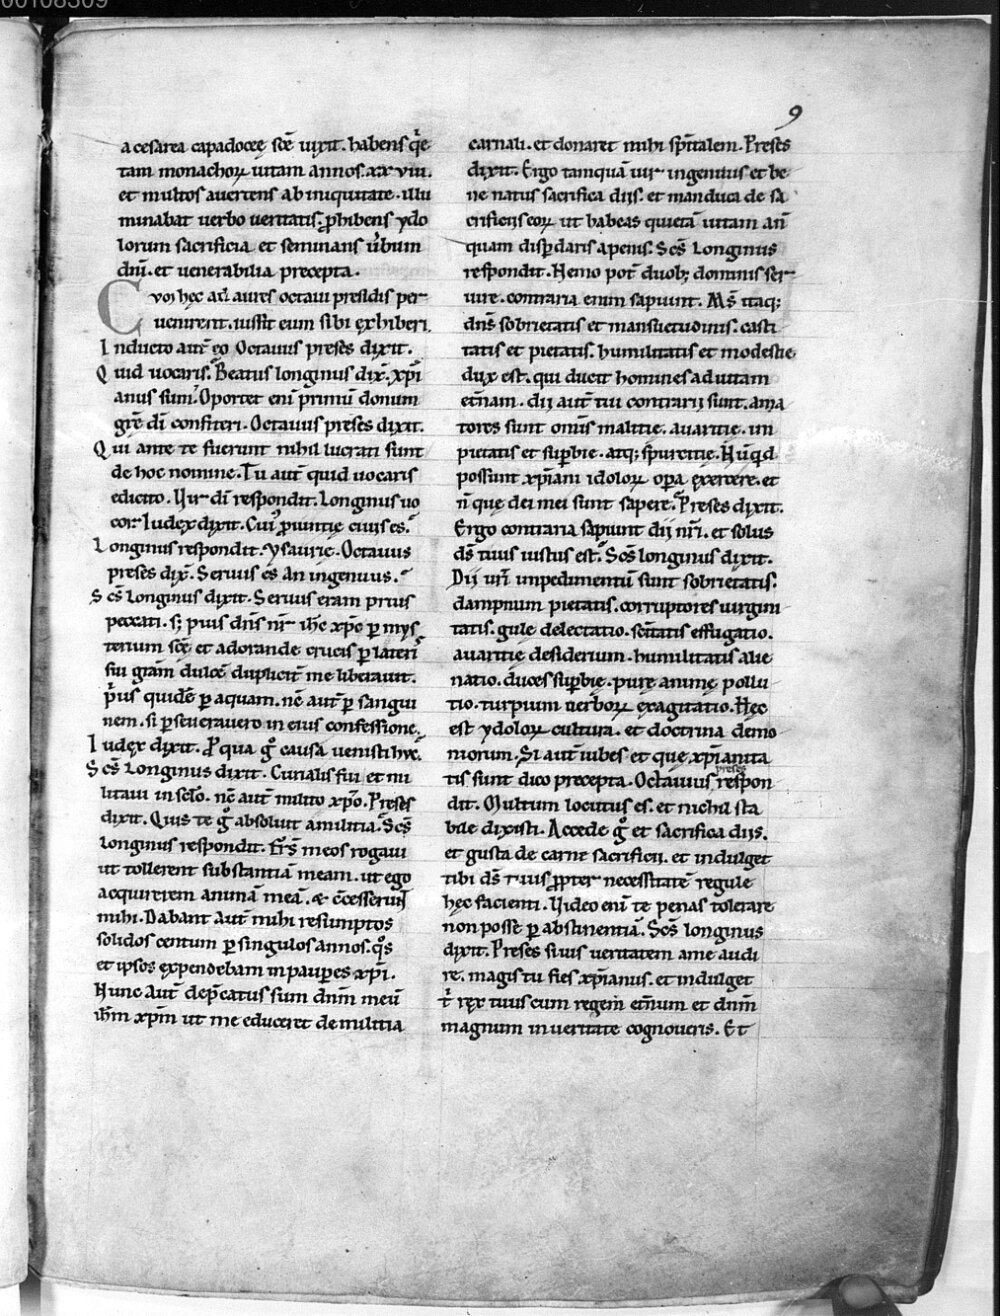 00108309
9
a cesarea capadocię scē uixit. habens q̄e
tam monachoꝝ uitam annos. xx viii.
et multos auertens ab iniquitate. illu
minabat uerbo ueritatis. ꝓhibens ydo
lorum sacrificia et seminans uᷣbum
dn̄i. et uenerabilia precepta.
Cvoꝫ hęc ad aures octauii presidis per
uenirent. iussit eum sibi exhiberi.
Inducto aut̄ eo Octauius preses dixit.
Quid uocaris. Beatus longinus dix̄. xp̄i
anus sum. Oportet eni primū donum
grē di confiteri. Octauius preses dixit.
Qui ante te fuerunt nihil lucrati sunt
de hoc nomine. Tu aut̄ quid uocaris
edicito. Uir di respondit. Longinus uo
cor. Iudex dixit. Cui ꝓuintię ciuis es.
Longinus respondit. ysaurię. Octauius
preses dix̄. Seruus es an ingenuus.
Scs̄ Longinus dixit. Seruus eram prius
peccati. sꝫ pius dn̄s nr̄ ihc̄ xp̄c ꝑ mys
terium scę et adorande crucis ꝑ lateris
sui gr̄am dulcē dupliciter me liberauit.
pⁱus quidē ꝑ aquam. nc̄ aut̄ ꝑ sangui
nem. si ꝑseuerauero in eius confessione.
Iudex dixit. Ꝑ qua gͦ causa uenisti huc.
Scs̄ Longinus dixit. Curialis fui et mi
litaui in sclo. nc̄ aut̄ milito xp̄o. Preses
dixit. Quis te gͦ absoluit a militia. Scs̄
longinus respondit. Frs̄ meos rogaui
ut tollerent substantiā meam. ut ego
acquirerem animā meā. & c̄cesserunt
mihi. Dabant aut̄ mihi resumptos
solidos centum ꝑ singulos annos. qͦs
et ipsos expendebam in pauꝑes xp̄i.
Hunc aut̄ dep̄catus sum dn̄m meū
ihm̄ xp̄m ut me educeret de militia
carnali. et donaret mihi sp̄italem. Preses
dixit. Ergo tamquā uir ingenuus et be
ne natus sacrifica diis. et manduca de sa
crificiis eoꝝ ut habeas quietā uitam an̄
quam disꝑdaris a penis. Scs̄ Longinus
respondit. Nemo pot̄ duobꝫ dominis ser
uire. contraria enim sapiunt. Ms̄ itaqꝫ
dn̄s sobrietatis et mansuetudinis. casti
tatis et pietatis. humilitatis et modestie
dux est. qui ducit homines ad uitam
et̄nam. dii aut̄ tui contrarii sunt. ama
tores sunt om̄is malitie. auaritie. im
pietatis et suꝑbie. atqꝫ spurcitie. Nūqd
possunt xp̄iani idoloꝝ oꝑa exercere. et
n̄ que dei mei sunt sapere. Preses dixit.
Ergo contraria sapiunt dii nr̄i. et solus
ds̄ tuus iustus est. Scs̄ longinus dixit.
Dii ur̄i impedimentū sunt sobrietatis.
dampnum pietatis. corruptores uirgini
tatis. gule delectatio. scitatis effugatio.
auaritię desiderium. humilitatis alie
natio. duces suꝑbię. purę animę pollu
tio. turpium uerboꝝ exagitatio. Hęc
est ydoloꝝ cultura. et doctrina demo
niorum. Si aut̄ iubes et quę xp̄ianita
tis sunt dico precepta. Octauius preses respon
dit. Multum locutus es. et nichil sta
bile dixisti. Accede gͦ et sacrifica diis.
et gusta de carne sacrificii. et indulget
tibi ds̄ tuus ꝓpter necessitatē regule
hęc facienti. Uideo eni te penas tolerare
non posse ꝑ abstinentiā. Scs̄ longinus
dixit. Preses si uis ueritatem a me audi
re. magis tu fies xp̄ianus. et indulget
tⁱ rex tuus cum regem et̄num et dn̄m
magnum in ueritate cognoueris. Et